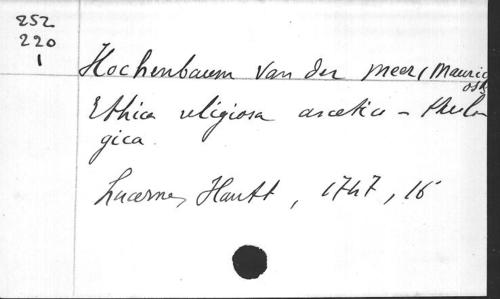 252
220
1
Hochenbaum Van der Meer (Mauric
Ethica religiosa ascetico - theolo
gica
Lucernes Hautt, 1747, 16°